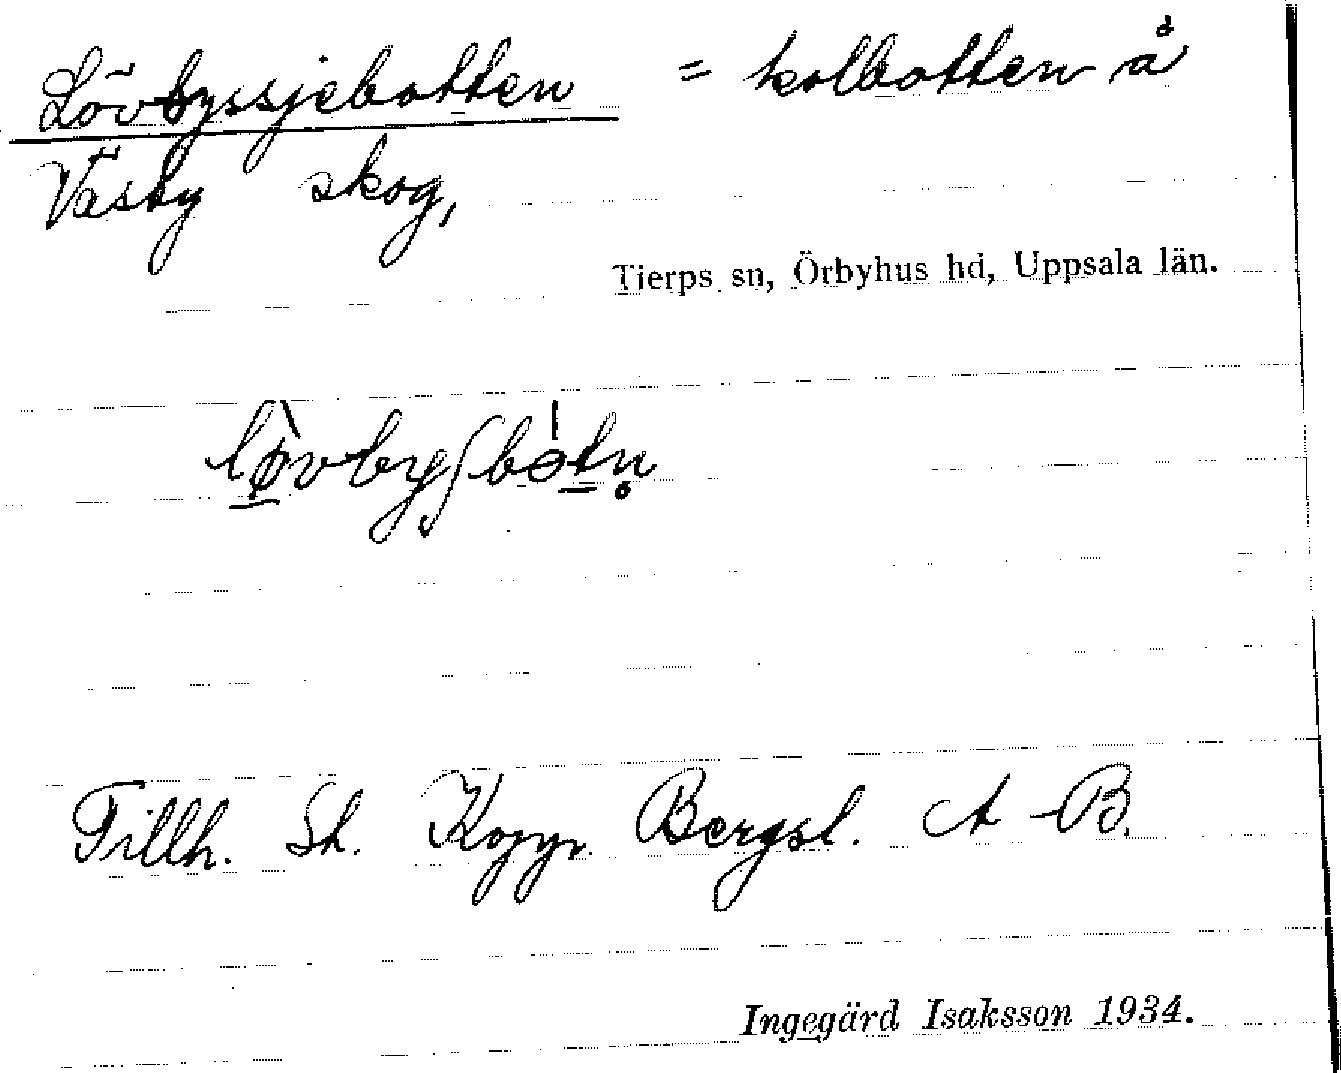 Lövbyssjebotten = kolbotten å
Väsby skog,
Tierps sn, Örbyhus hd, Uppsala län.
Tillh. St. Koppr. Bergsl. A-B.
Ingegärd Isaksson 1934.